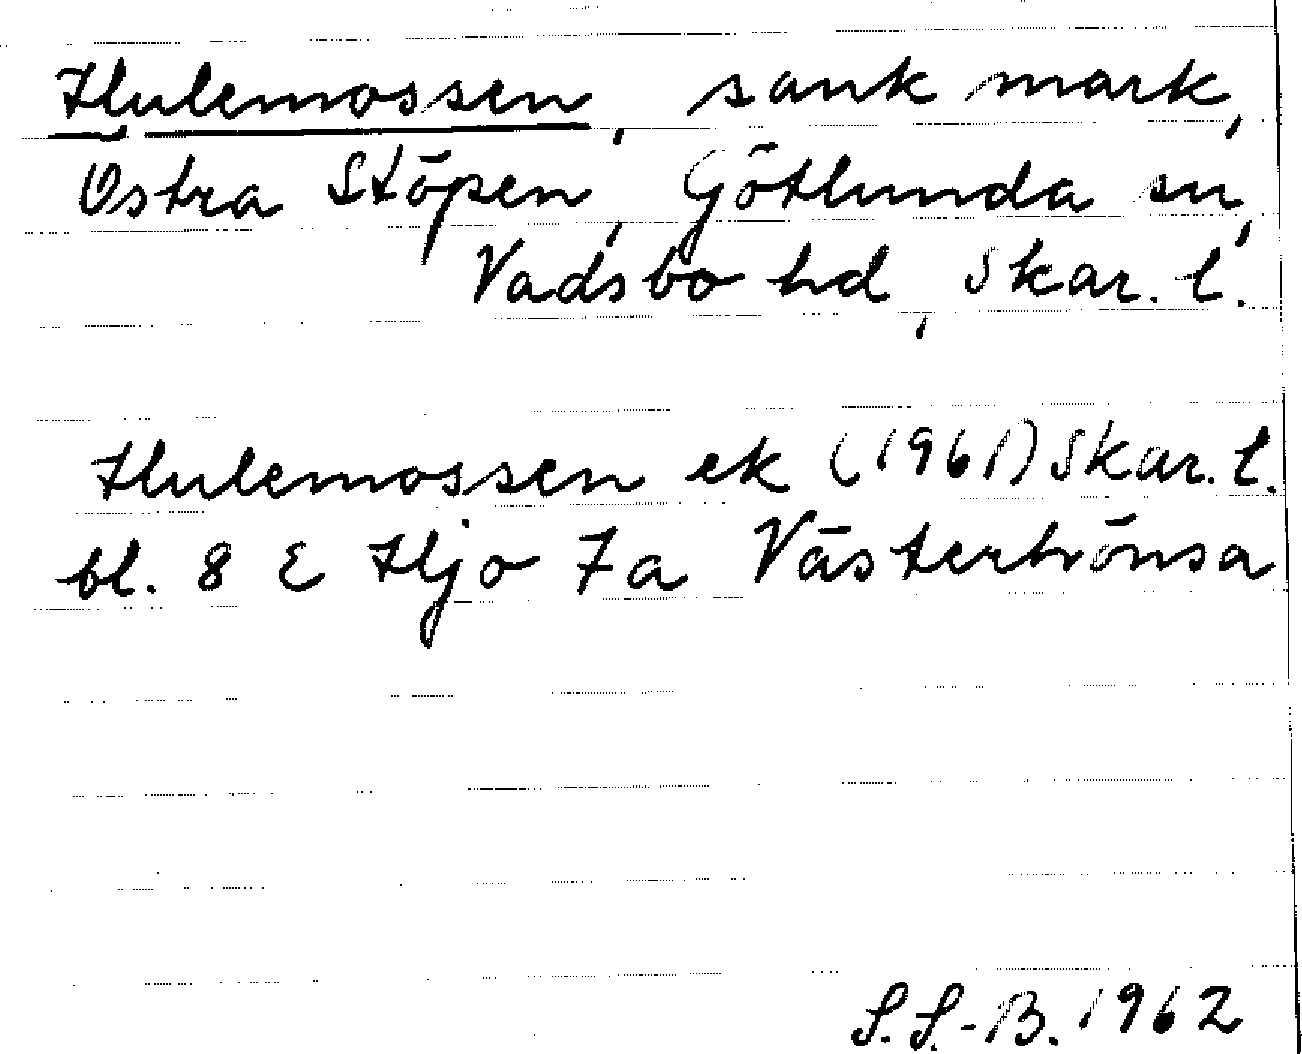 Hulemossen, sank mark,
Östra Stöpen, Götlunda sn,
Vadsbo hd, Skar. l.
Hulemossen ek (1961) Skar. l.
bl. 8 E Hjo 7a Västerbönsa
S. S.-B. 1962